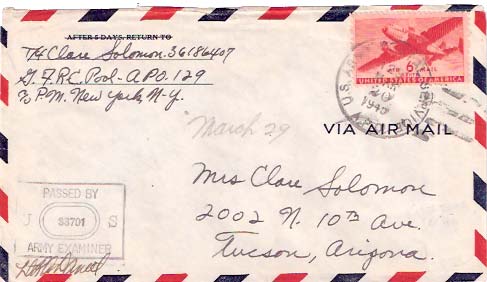 AFTER 5 DAYS, RETURN TO
T/4 Clare Solomon. 36186407
G.F.R.C. Pool - A.P.O. 129
% P.M. New York, N-Y.
6¢ AIR MAIL
UNITED STATES OF AMERICA
U.S. ARMY
SERVICE
MAR
20
A.P.O.
March 29
VIA AIR MAIL
Mrs Clare Solomon
2002 N. 10th Ave.
Tucson, Arizona.
PASSED BY
U 38701 S
ARMY EXAMINER